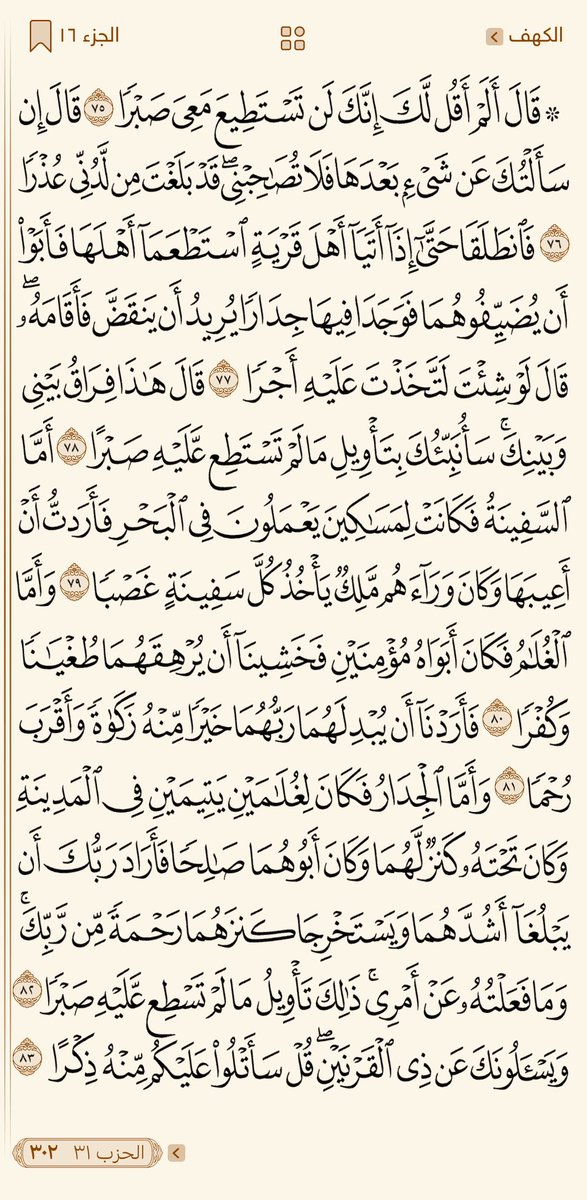 الكهف
الجزء ١٦
۞ قَالَ أَلَمْ أَقُل لَّكَ إِنَّكَ لَن تَسْتَطِيعَ مَعِىَ صَبْرًا ٧٥ قَالَ إِن
سَأَلْتُكَ عَن شَىْءٍۭ بَعْدَهَا فَلَا تُصَٰحِبْنِى ۖ قَدْ بَلَغْتَ مِن لَّدُنِّى عُذْرًا
٧٦ فَٱنطَلَقَا حَتَّىٰٓ إِذَآ أَتَيَآ أَهْلَ قَرْيَةٍ ٱسْتَطْعَمَآ أَهْلَهَا فَأَبَوْا۟
أَن يُضَيِّفُوهُمَا فَوَجَدَا فِيهَا جِدَارًا يُرِيدُ أَن يَنقَضَّ فَأَقَامَهُۥ ۖ
قَالَ لَوْ شِئْتَ لَتَّخَذْتَ عَلَيْهِ أَجْرًا ٧٧ قَالَ هَٰذَا فِرَاقُ بَيْنِى
وَبَيْنِكَ ۚ سَأُنَبِّئُكَ بِتَأْوِيلِ مَا لَمْ تَسْتَطِع عَّلَيْهِ صَبْرًا ٧٨ أَمَّا
ٱلسَّفِينَةُ فَكَانَتْ لِمَسَٰكِينَ يَعْمَلُونَ فِى ٱلْبَحْرِ فَأَرَدتُّ أَنْ
أَعِيبَهَا وَكَانَ وَرَآءَهُم مَّلِكٌ يَأْخُذُ كُلَّ سَفِينَةٍ غَصْبًا ٧٩ وَأَمَّا
ٱلْغُلَٰمُ فَكَانَ أَبَوَاهُ مُؤْمِنَيْنِ فَخَشِينَآ أَن يُرْهِقَهُمَا طُغْيَٰنًا
وَكُفْرًا ٨٠ فَأَرَدْنَآ أَن يُبْدِلَهُمَا رَبُّهُمَا خَيْرًا مِّنْهُ زَكَوٰةً وَأَقْرَبَ
رُحْمًا ٨١ وَأَمَّا ٱلْجِدَارُ فَكَانَ لِغُلَٰمَيْنِ يَتِيمَيْنِ فِى ٱلْمَدِينَةِ
وَكَانَ تَحْتَهُۥ كَنزٌ لَّهُمَا وَكَانَ أَبُوهُمَا صَٰلِحًا فَأَرَادَ رَبُّكَ أَن
يَبْلُغَآ أَشُدَّهُمَا وَيَسْتَخْرِجَا كَنزَهُمَا رَحْمَةً مِّن رَّبِّكَ ۚ
وَمَا فَعَلْتُهُۥ عَنْ أَمْرِى ۚ ذَٰلِكَ تَأْوِيلُ مَا لَمْ تَسْطِع عَّلَيْهِ صَبْرًا ٨٢
وَيَسْـَٔلُونَكَ عَن ذِى ٱلْقَرْنَيْنِ ۖ قُلْ سَأَتْلُوا۟ عَلَيْكُم مِّنْهُ ذِكْرًا ٨٣
الحزب ٣١ ٣٠٢